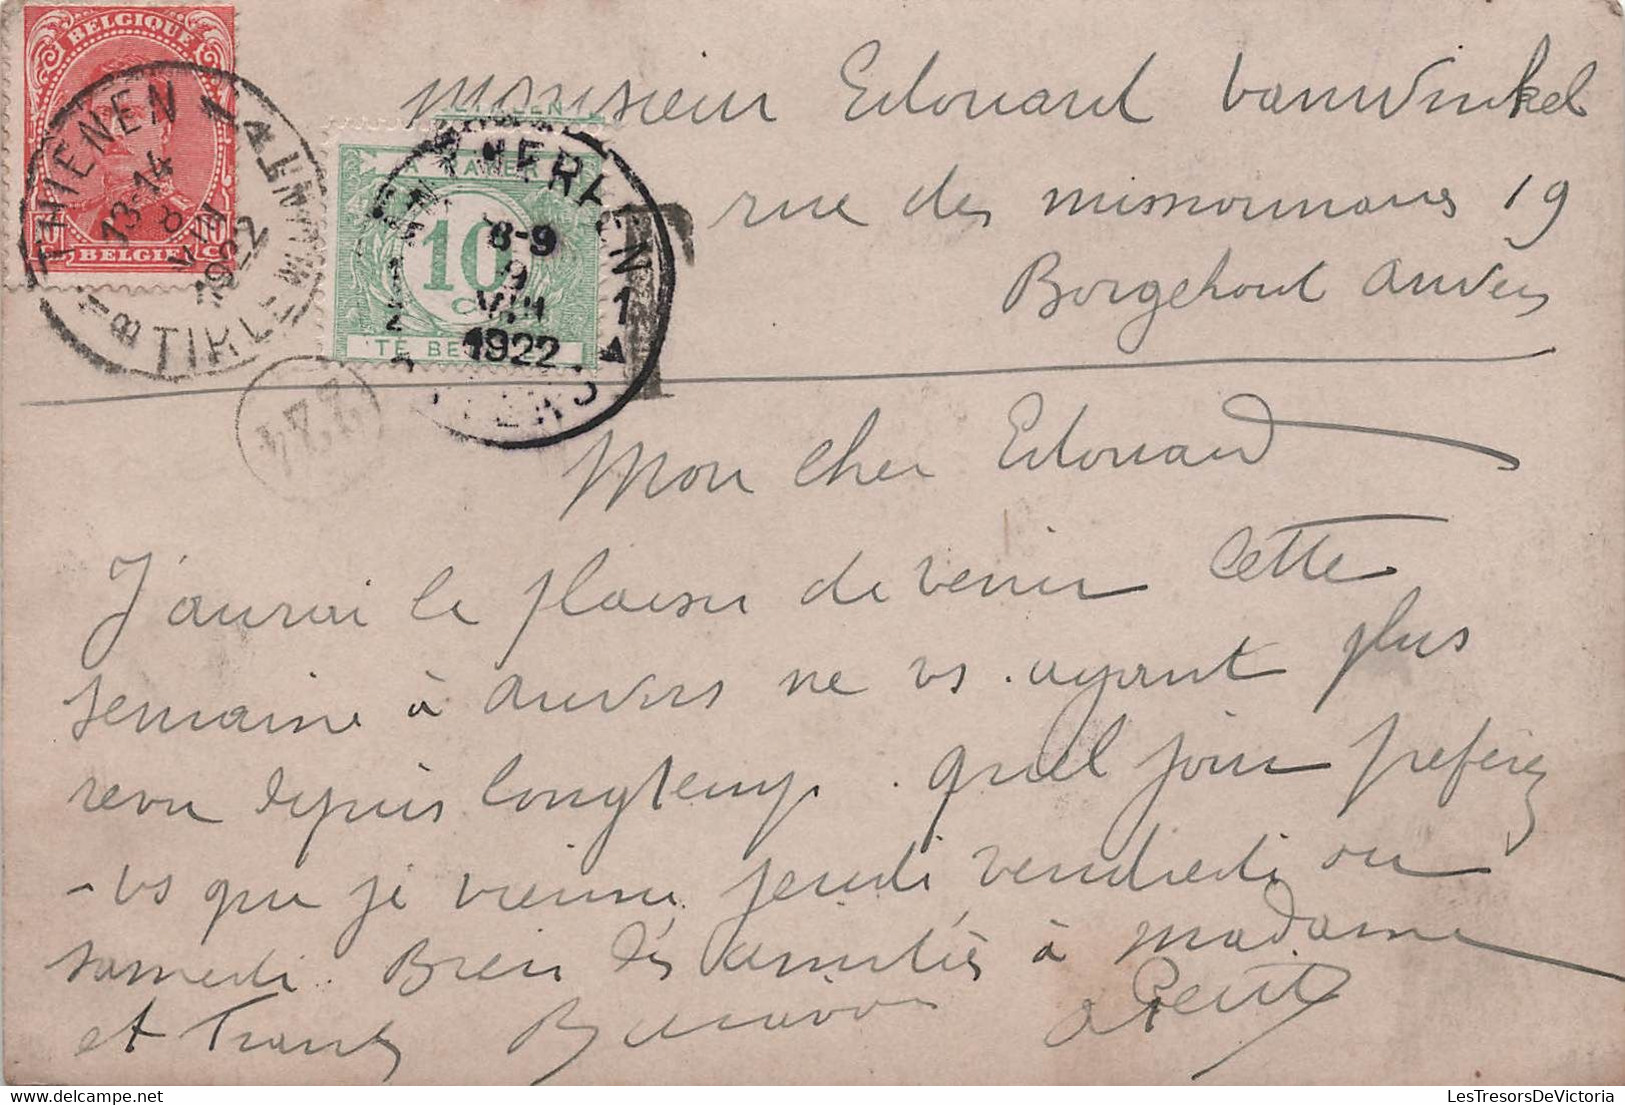 BELGIQUE
BELGIË
THIENEN 1
13-14
8
VIII
1922
TIRLEMONT
1B
A PAYER
10
C
TE BE
ANTWERPEN 1
8-9
9
VIII
1922
ANVERS
T
monsieur Edouard Vanwinkel
rue des missionnaires 19
Borgehout Anvers
Mon Cher Edouard
J'aurai le plaisir de venir cette
semaine à Anvers ne vs. ayant plus
revu depuis longtemps. quel jour preferez
-vs que je vienne jeudi vendredi ou
samedi. Bien des amitiés à Madame
et Frantz
LesTresorsDeVictoria